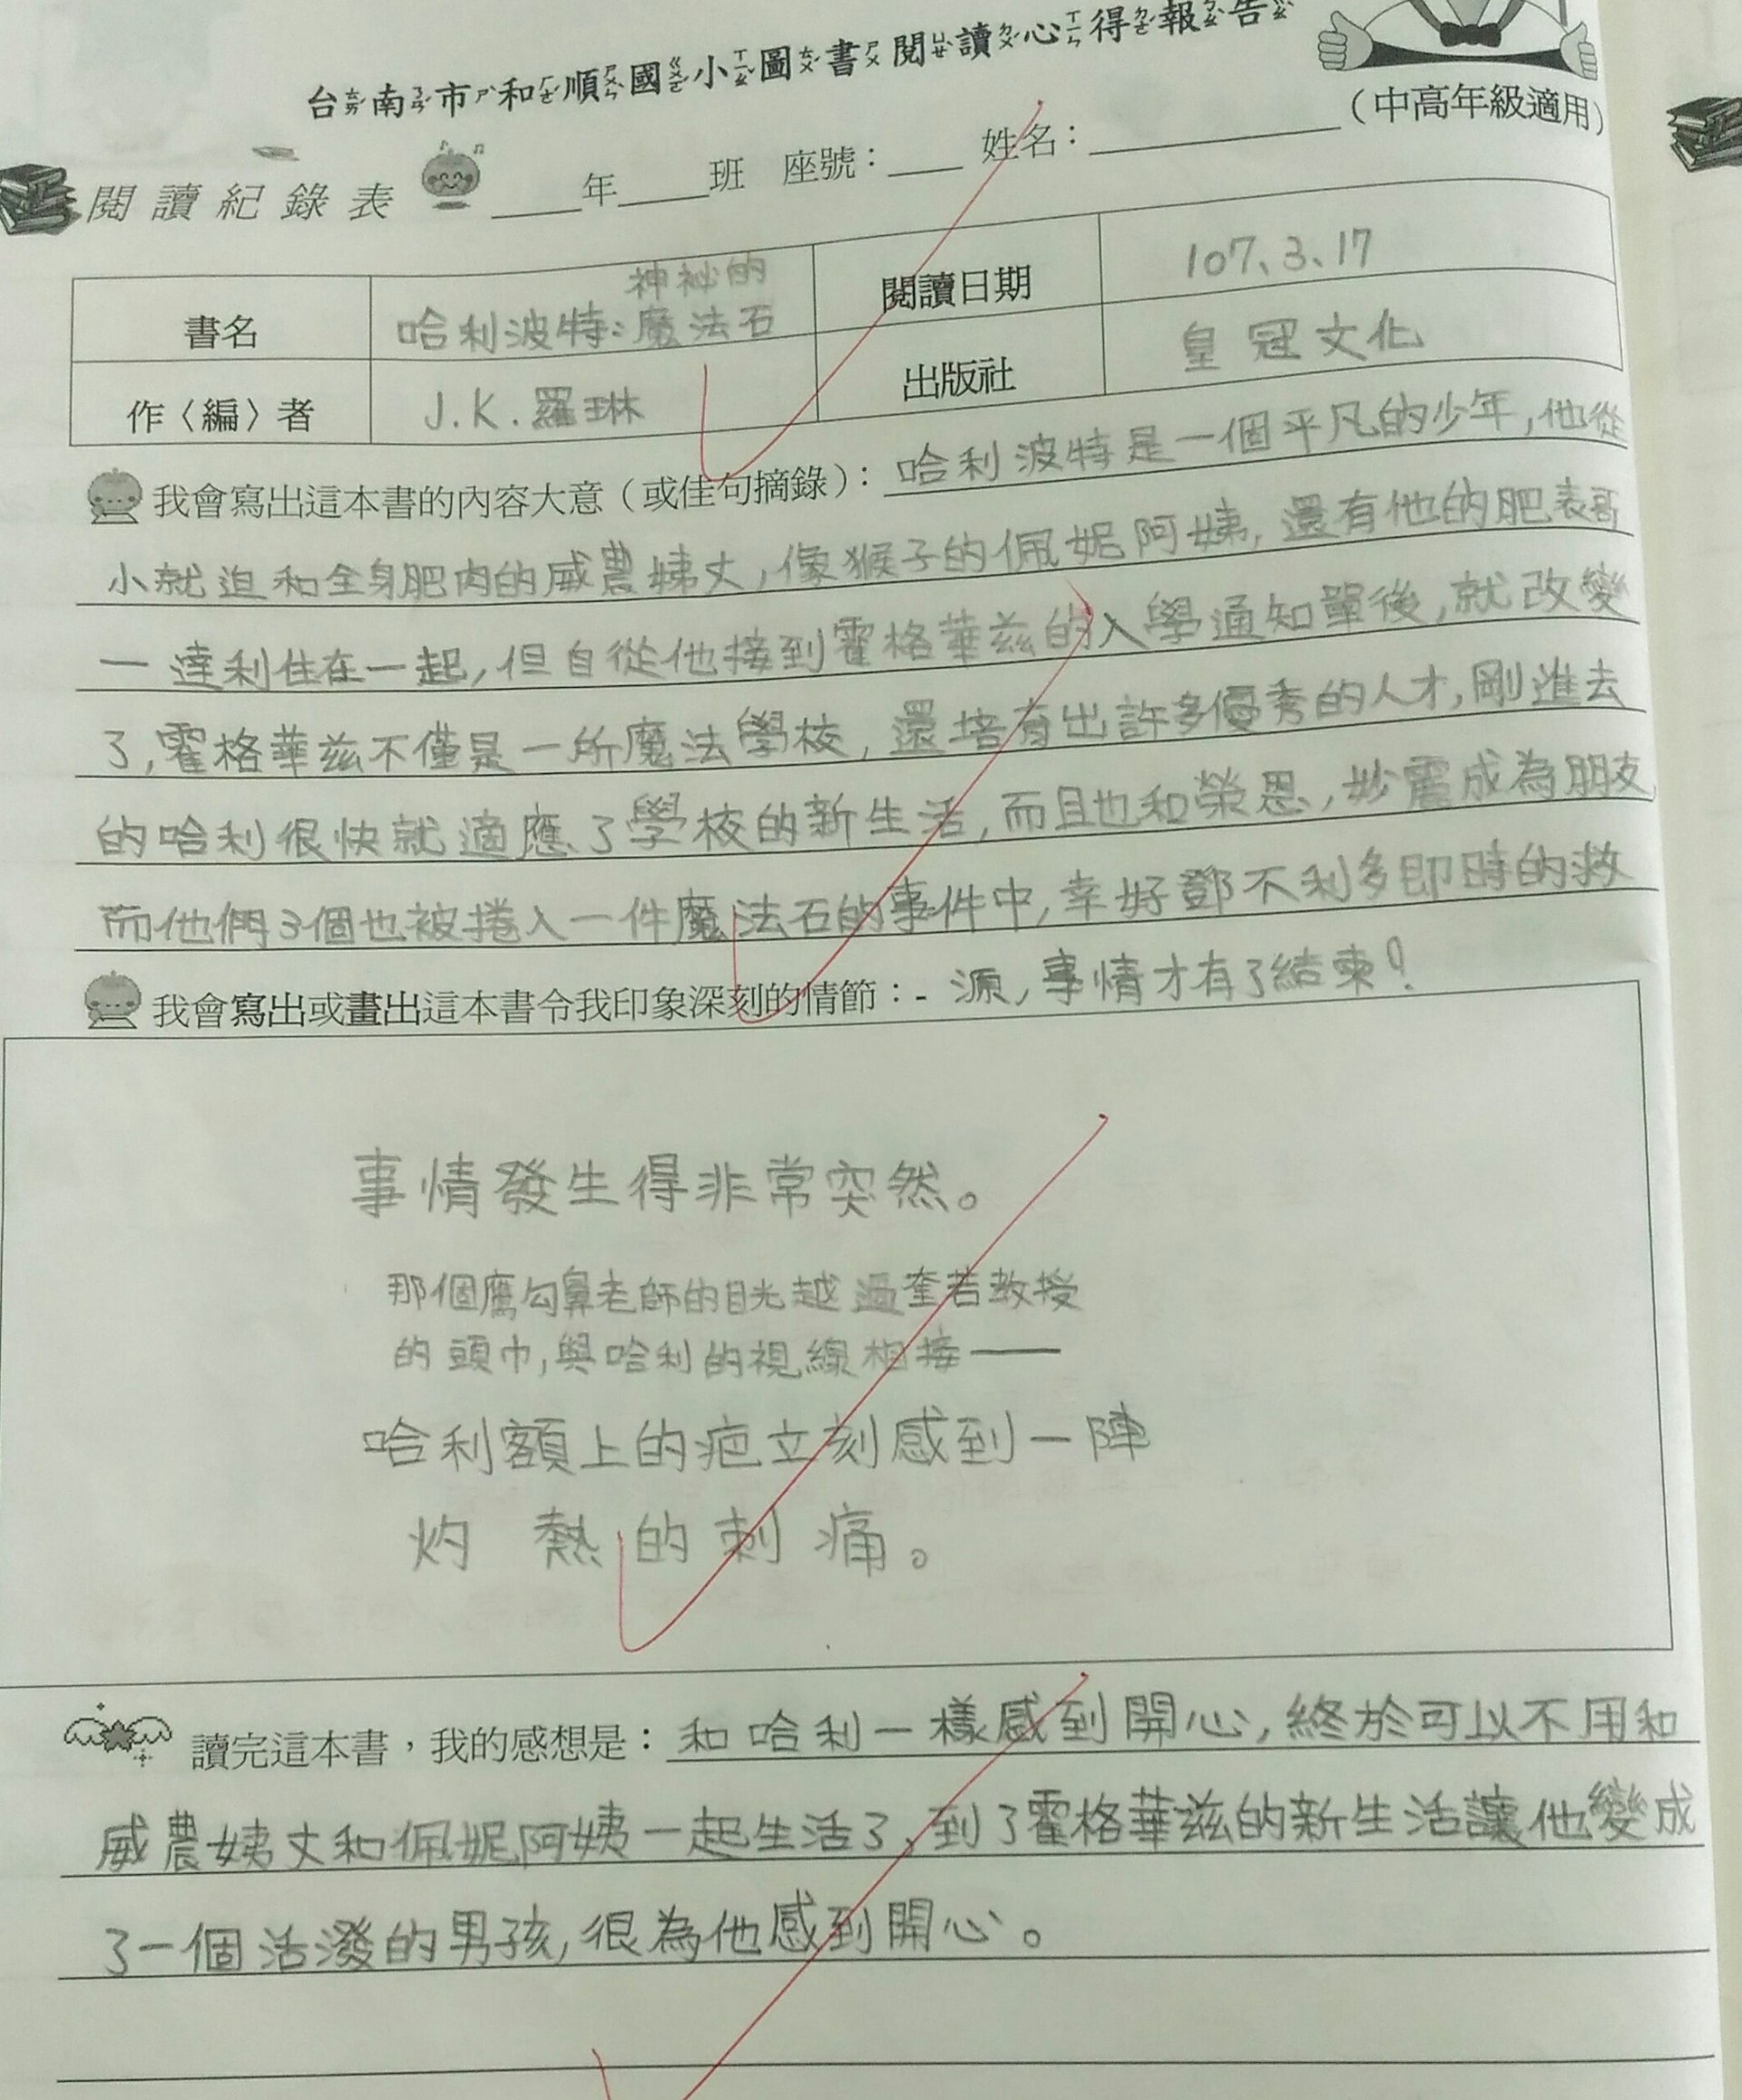 台南市和順國小圖書閱讀心得報告
(中高年級適用)
閱讀紀錄表 ____年____班 座號：____ 姓名：________
書名 哈利波特：神祕的魔法石 閱讀日期 107、3、17
作〈編〉者 J.K.羅琳 出版社 皇冠文化
我會寫出這本書的內容大意（或佳句摘錄）：哈利波特是一個平凡的少年,他從
小就迫和全身肥肉的威農姨丈,像猴子的佩妮阿姨,還有他的肥表哥
一達利住在一起,但自從他接到霍格華茲的入學通知單後,就改變
了,霍格華茲不僅是一所魔法學校,還培育出許多優秀的人才,剛進去
的哈利很快就適應了學校的新生活,而且也和榮恩,妙麗成為朋友
而他們3個也被捲入一件魔法石的事件中,幸好鄧不利多即時的救
我會寫出或畫出這本書令我印象深刻的情節：- 源,事情才有了結束!
事情發生得非常突然。
那個鷹勾鼻老師的目光越過奎若教授
的頭巾,與哈利的視線相接——
哈利額上的疤立刻感到一陣
灼熱的刺痛。
讀完這本書，我的感想是：和哈利一樣感到開心,終於可以不用和
威農姨丈和佩妮阿姨一起生活了,到了霍格華茲的新生活讓他變成
了一個活潑的男孩,很為他感到開心。